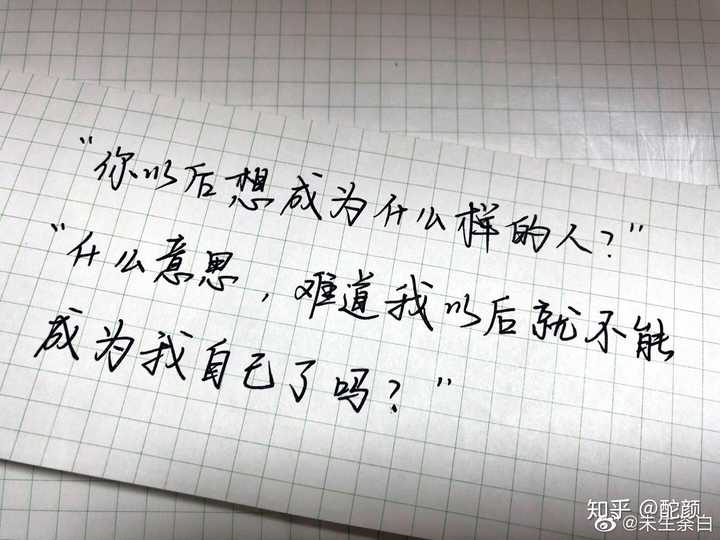 “你以后想成为什么样的人？”
“什么意思，难道我以后就不能
成为我自己了吗？”
知乎 @酡颜
@未生祭白